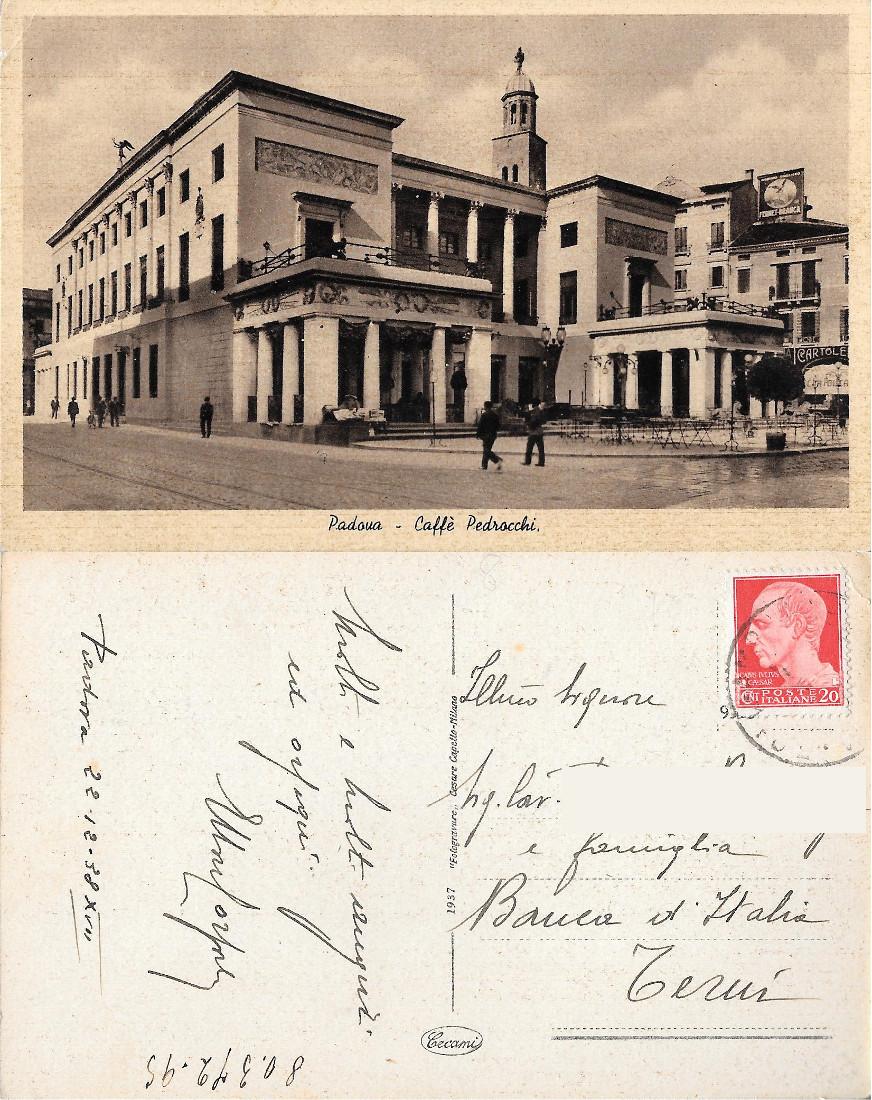 FERNET-BRANCA
CARTOLE
Padova - Caffè Pedrocchi.
Padova 22-12-38 XVII
Molti e molti auguri
ed ossequi
Ill.mo Signore
Sig. Cav.
e famiglia
Banca d'Italia
Terni
1937 "Fotogravure" Cesare Capello-Milano
Cecami
CAIVS IVLIVS
CAESAR
CENT POSTE ITALIANE 20
80.372.95